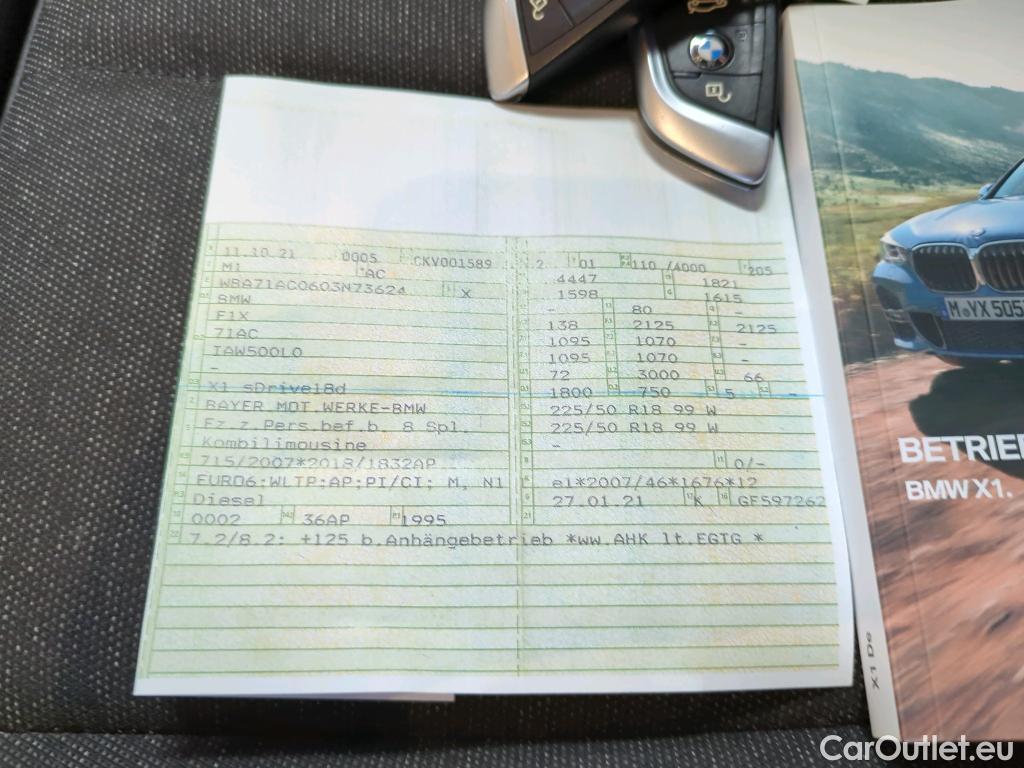 11.10.21 0005 CKV001589 2 01 110 /4000 205
M1 AC 4447 1821
WBA71AC0603N73624 X 1598 1615
BMW - 80 -
F1X 138 2125 2125
71AC 1095 1070 -
IAW500L0 1095 1070 -
- 72 3000 66
X1 sDrive18d 1800 750 5 -
BAYER.MOT.WERKE-BMW 225/50 R18 99 W
Fz.z.Pers.bef.b. 8 Spl. 225/50 R18 99 W
Kombilimousine -
715/2007*2018/1832AP 0/-
EURO6;WLTP;AP;PI/CI; M, N1 e1*2007/46*1676*12
Diesel 27.01.21 K GF597262
0002 36AP 1995
7.2/8.2: +125 b.Anhängebetrieb *ww.AHK lt.EGTG *
M YX 505
BETRIE
BMW X1.
X1 De
CarOutlet.eu